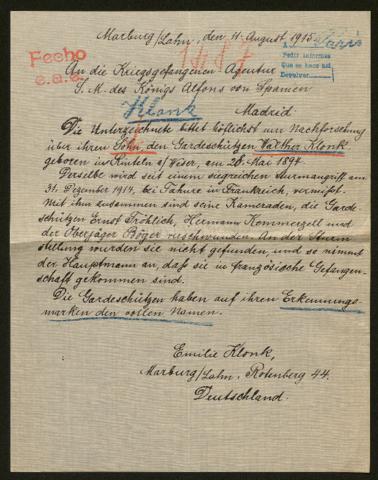 Marburg/Lahn, den 11. August 1915.
Fecho
e.a.s.
Paris
Pedir informes
Que se haga asi
Devolver
An die Kriegsgefangenen-Agentur
S. M. des Königs Alfons von Spanien
Klonk
Madrid
Die Unterzeichnete bittet höflichst um Nachforschung
über ihren Sohn, den Gardeschützen Walther Klonk
geboren in Rinteln a/Weser, am 26. Mai 1894.
Derselbe wird seit einem siegreichen Sturmangriff am
31. Dezember 1914, bei Tahure in Frankreich, vermißt.
Mit ihm zusammen sind seine Kameraden, die Garde-
schützen Ernst Fröhlich, Hermann Kommerzell und
der Oberjäger Böger verschwunden. An der Sturm-
stellung wurden sie nicht gefunden, und so nimmt
der Hauptmann an, daß sie in französische Gefangen-
schaft gekommen sind.
Die Gardeschützen haben auf ihren Erkennungs-
marken den vollen Namen.
Emilie Klonk,
Marburg/Lahn, Rotenberg 44.
Deutschland.